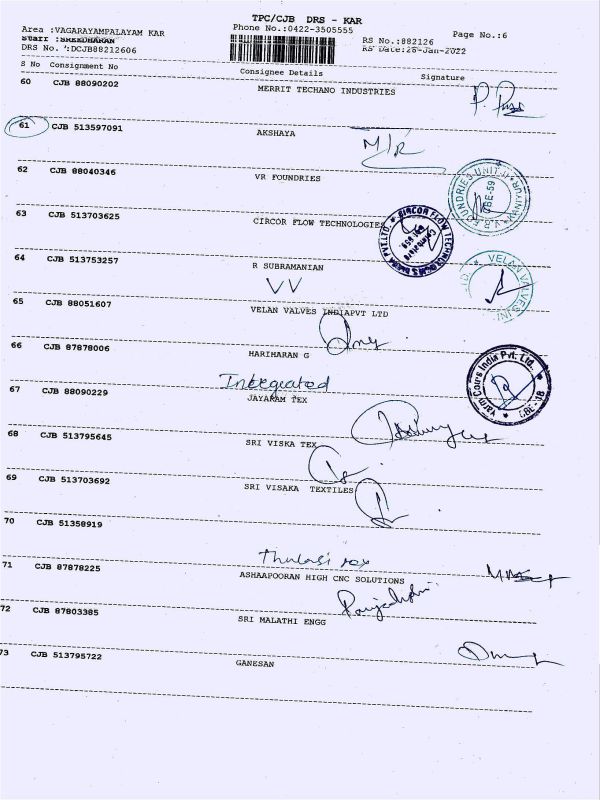 TPC/CJB DRS - KAR
Area :VAGARAYAMPALAYAM KAR
Phone No.:0422-3505555
Page No.:6
Staff :SREEDHARAN
RS No.:882126
DRS No. :DCJB88212606
RS Date:26-Jan-2022
S No Consignment No Consignee Details Signature
60 CJB 88090202 MERRIT TECHANO INDUSTRIES
61 CJB 513597091 AKSHAYA
M/R
62 CJB 88040346 VR FOUNDRIES
63 CJB 513703625 CIRCOR FLOW TECHNOLOGIES
64 CJB 513753257 R SUBRAMANIAN
VV
65 CJB 88051607 VELAN VALVES INDIAPVT LTD
66 CJB 87878006 HARIHARAN G
Integrated
67 CJB 88090229 JAYARAM TEX
68 CJB 513795645 SRI VISKA TEX
69 CJB 513703692 SRI VISAKA TEXTILES
70 CJB 51358919
Thulasi tex
71 CJB 87878225 ASHAAPOORAN HIGH CNC SOLUTIONS
72 CJB 87803385 SRI MALATHI ENGG
73 CJB 513795722 GANESAN